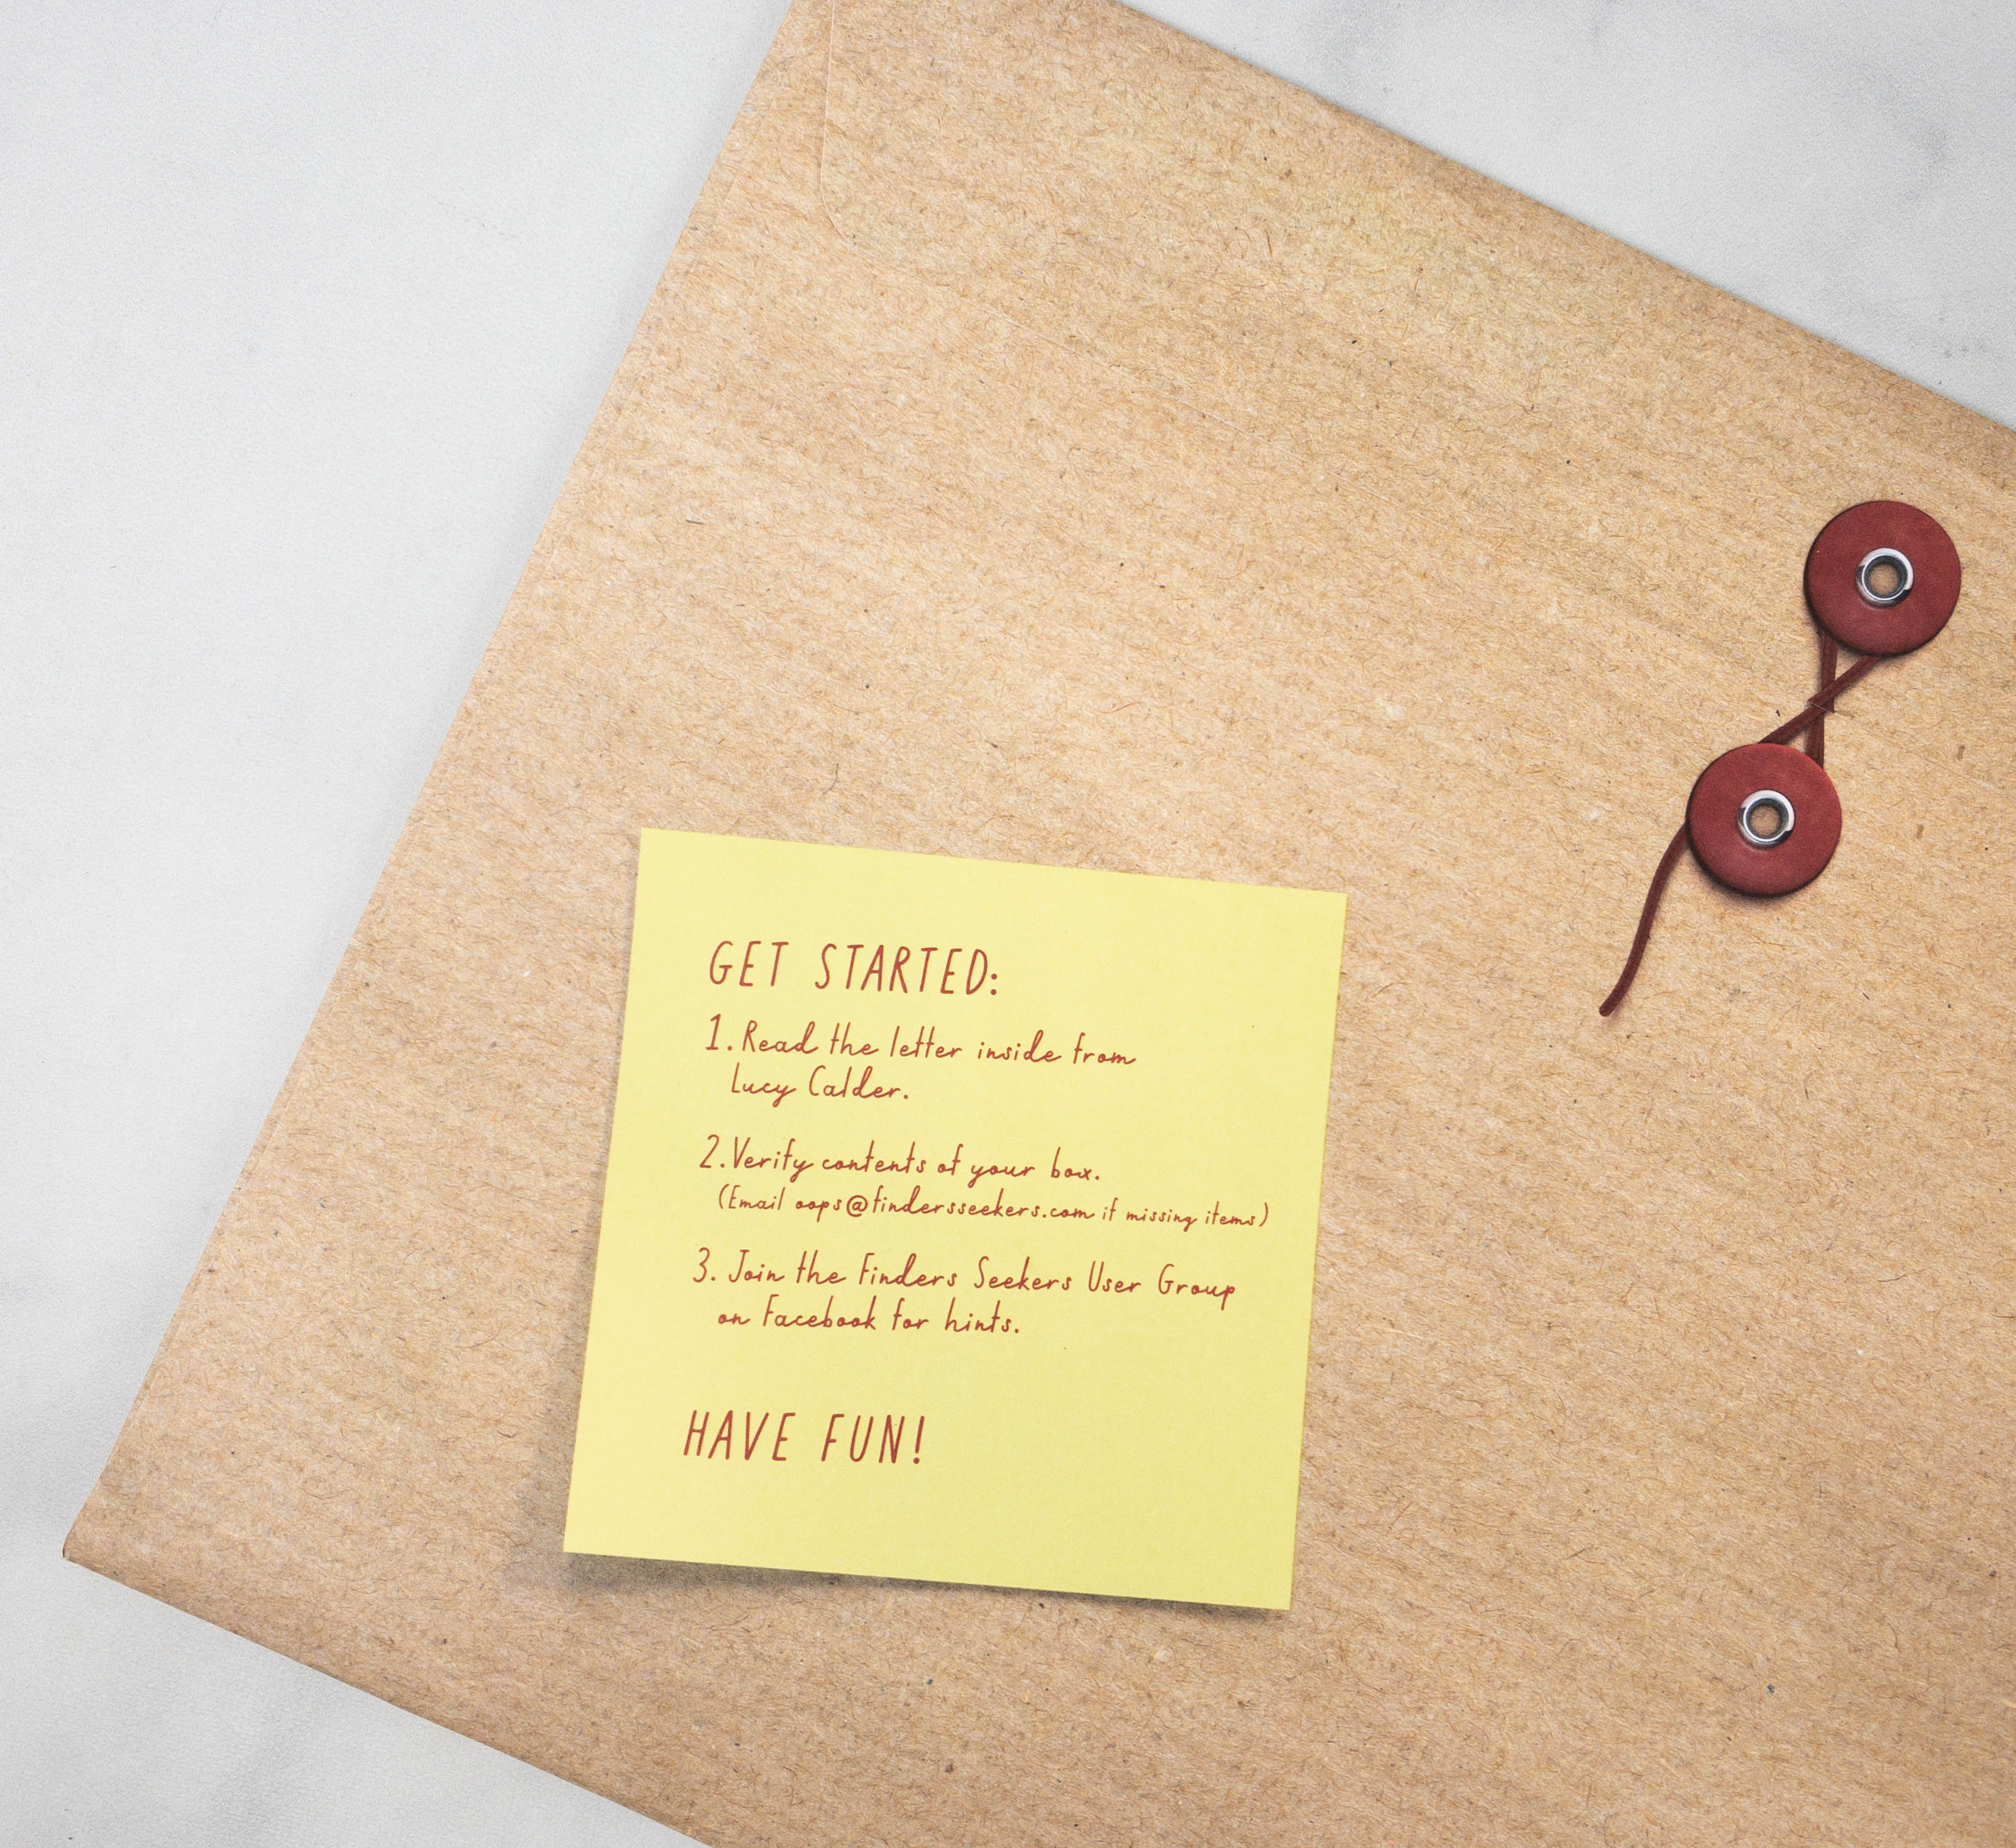 GET STARTED:
1. Read the letter inside from
Lucy Calder.
2. Verify contents of your box.
(Email oops@findersseekers.com if missing items)
3. Join the Finders Seekers User Group
on Facebook for hints.
HAVE FUN!